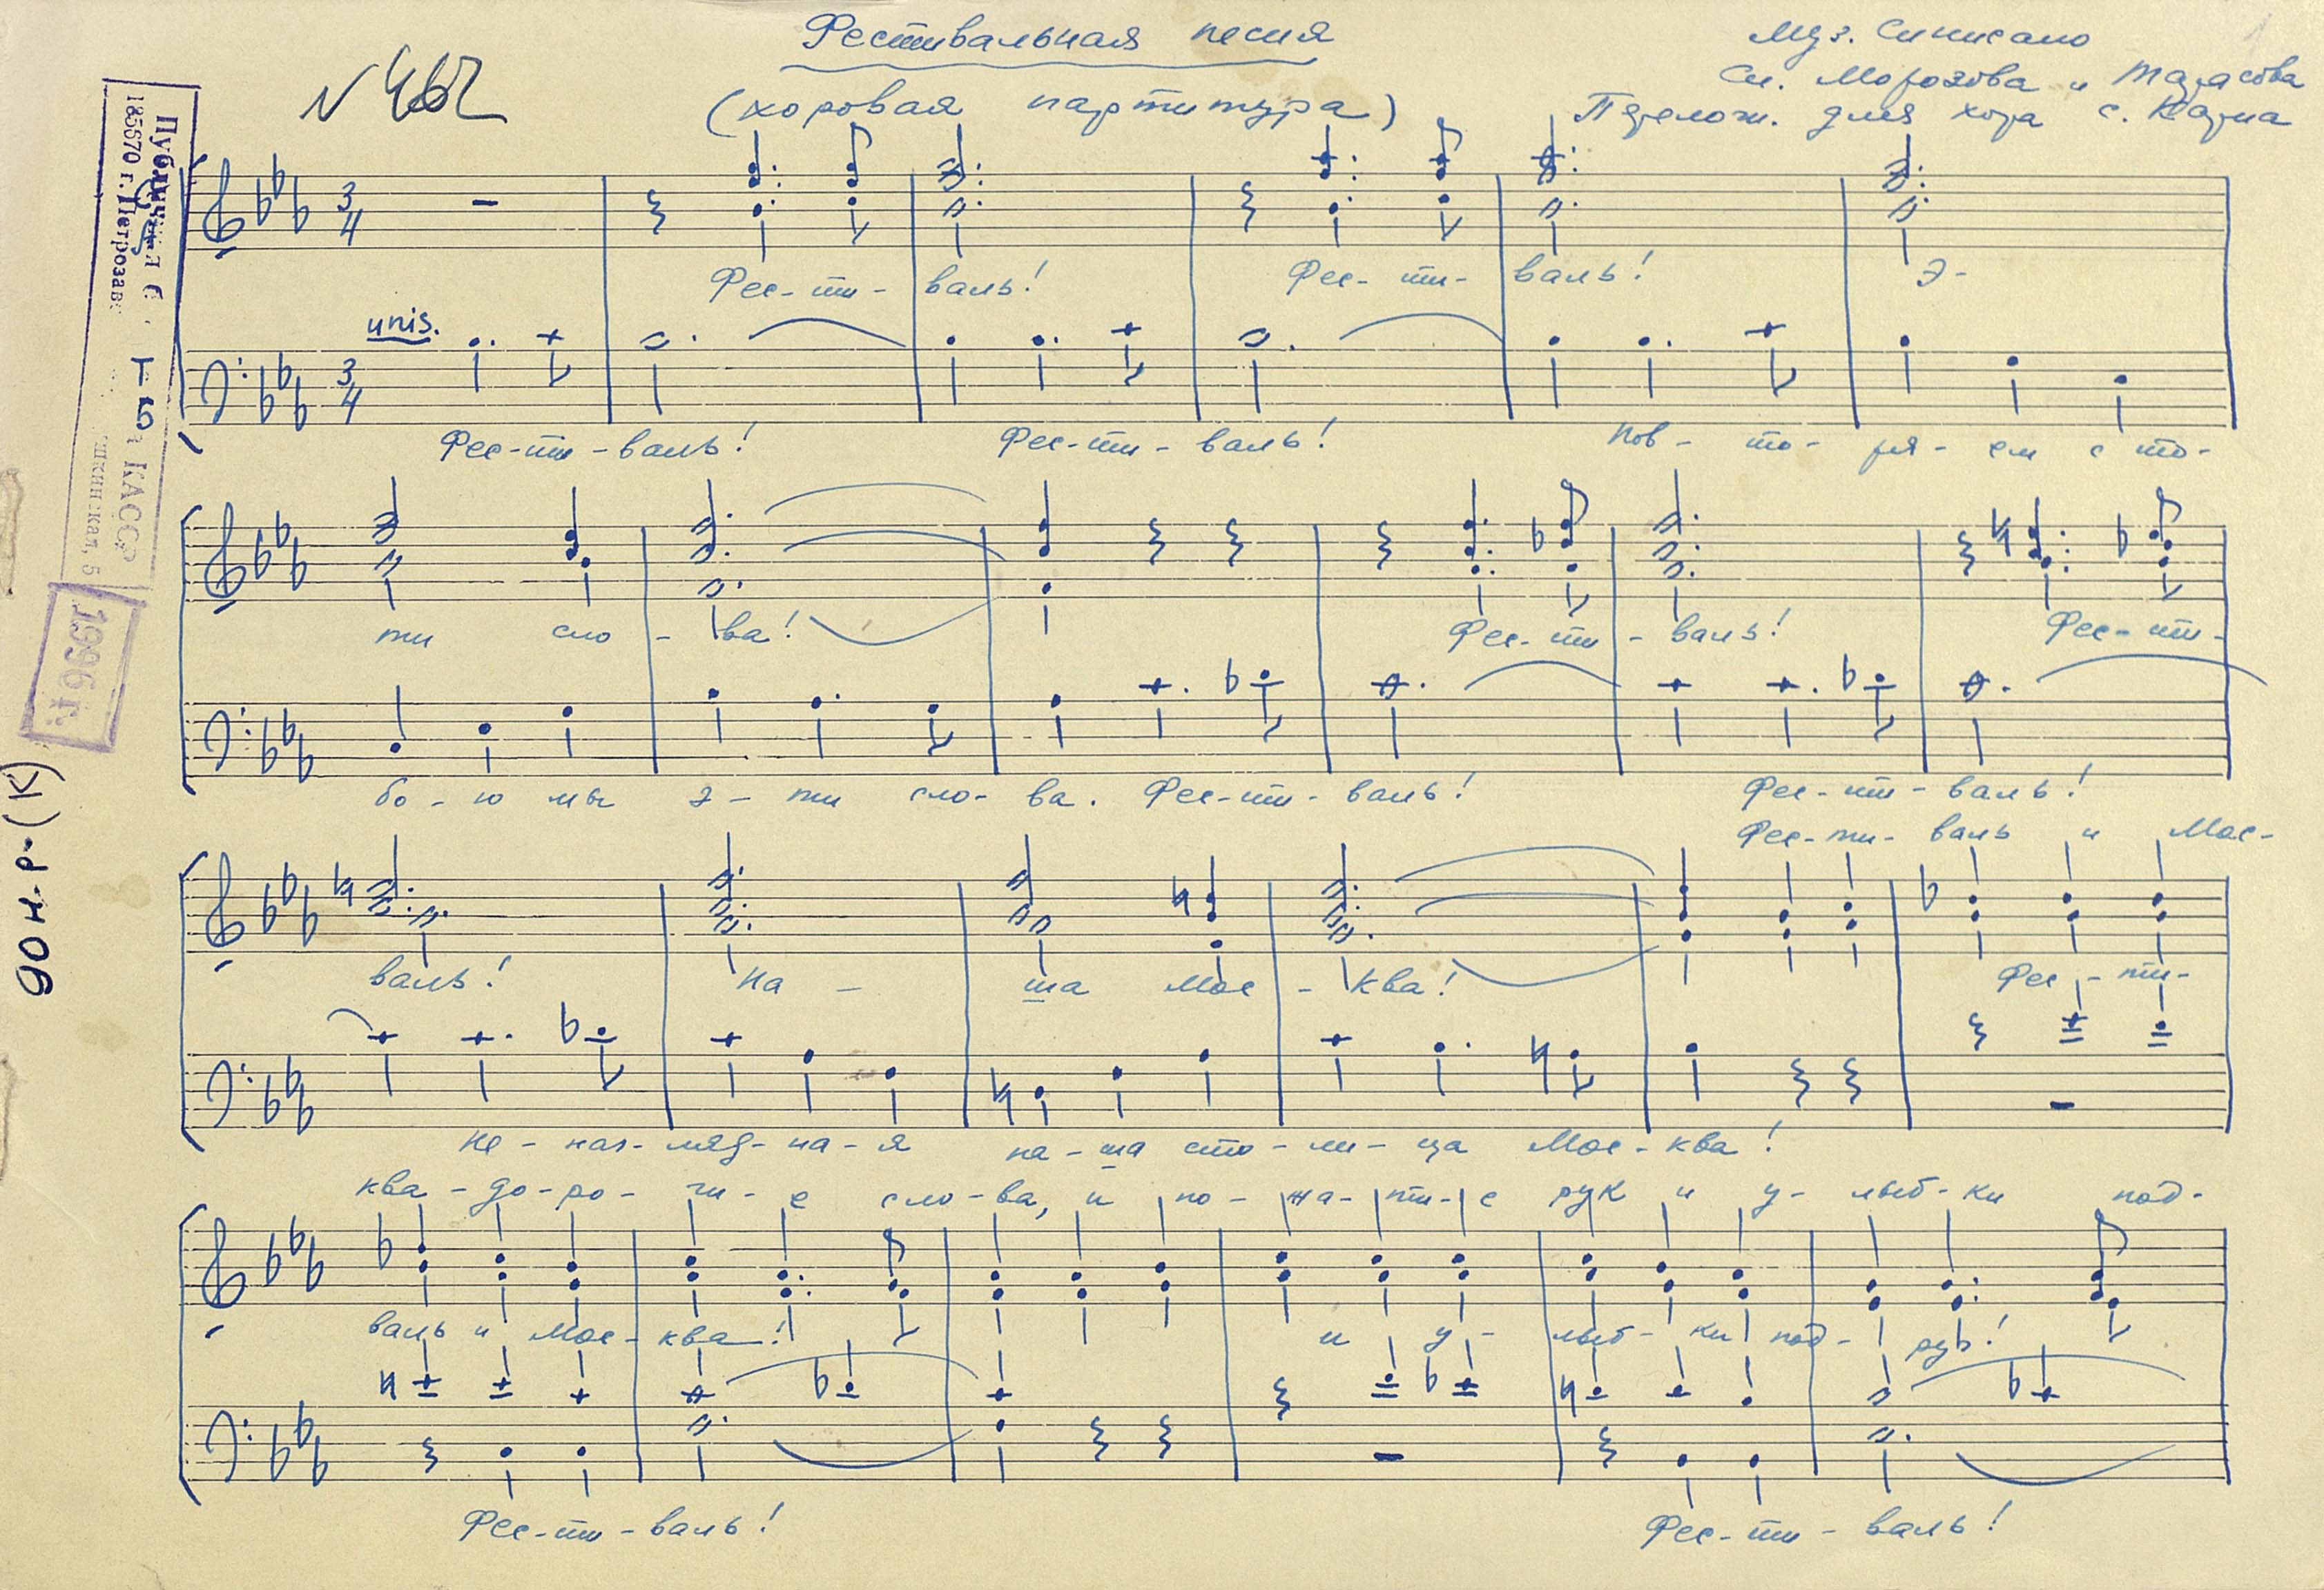 Фестивальная песня
(хоровая партитура)
Муз. Синисало
Сл. Морозова и Тарасова
Перелож. для хора с. Карпа
N 462
185670 г. Петрозав
КАСС
1996 г.
90 н.р-(К)
3/4
Фес-ти-валь! Фес-ти-валь! Э-
unis.
3/4
Фес-ти-валь! Фес-ти-валь! Пов-то-ря-ем с то-
ти сло-ва! Фес-ти-валь! Фес-ти-
бо-ю мы э-ти сло-ва. Фес-ти-валь! Фес-ти-валь!
Фес-ти-валь и Мос-
валь! На-ша Мос-ква! Фес-ти-
не-наг-ляд-на-я на-ша сто-ли-ца Мос-ква!
ква-до-ро-ги-е сло-ва, и по-жа-ти-е рук и у-лыб-ки под-
валь и Мос-ква! и у-лыб-ки под-руг!
Фес-ти-валь! Фес-ти-валь!